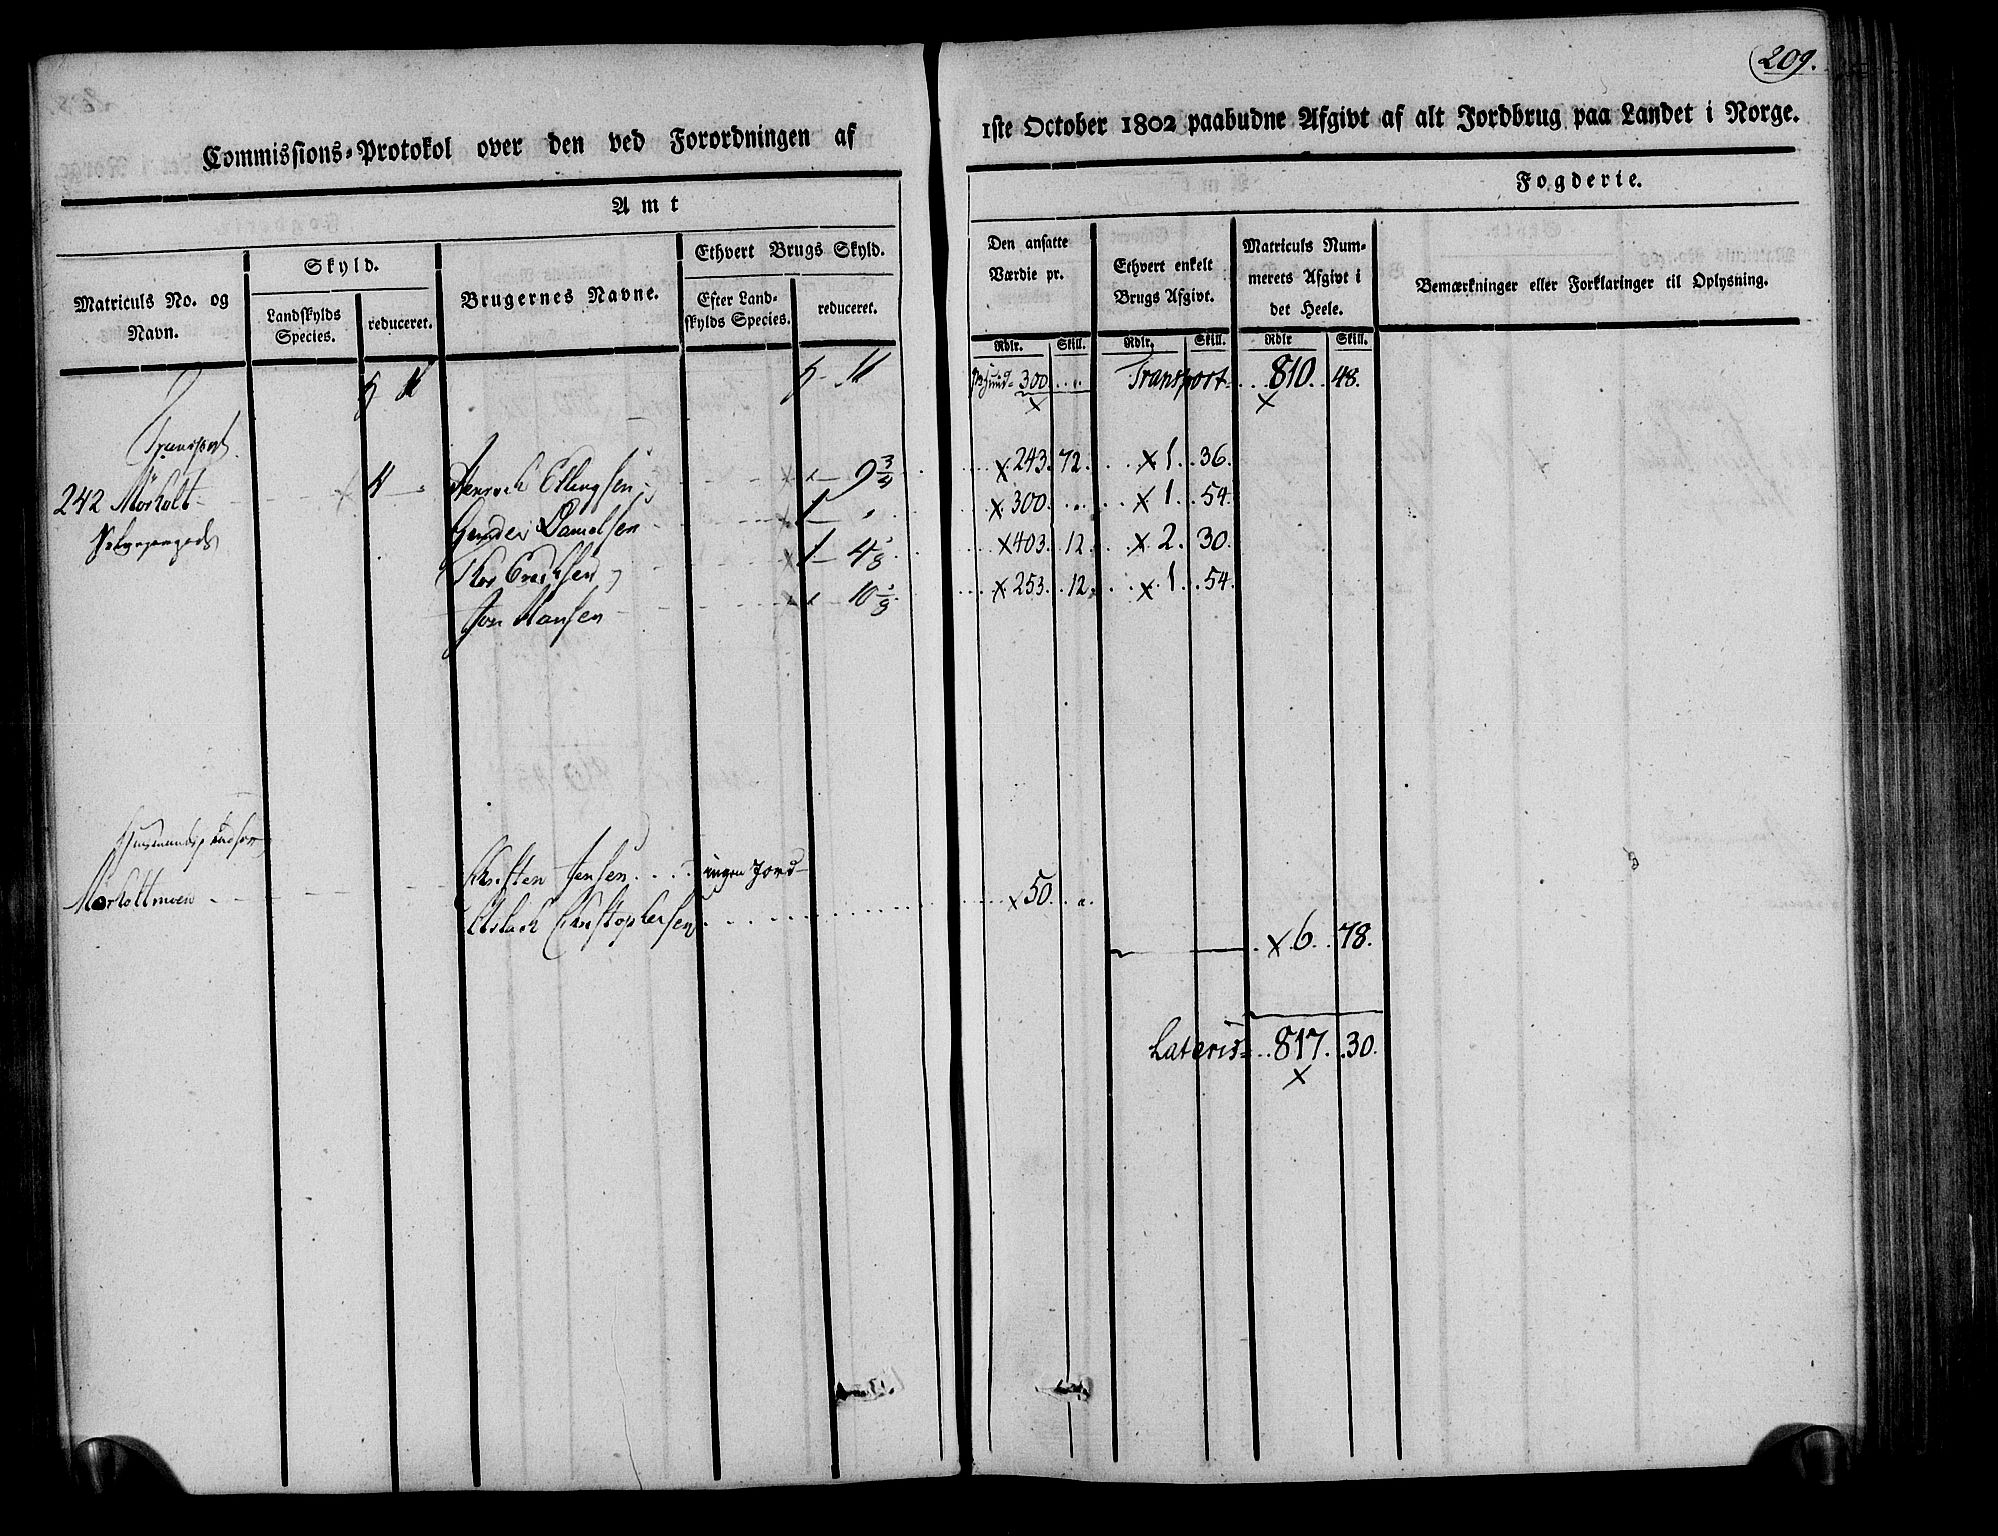 209.
Commissions-Protokol over den ved Forordningen af 1ste October 1802 paabudne Afgivt af alt Jordbrug paa Landet i Norge.
Amt Fogderie.
Matriculs No. og Navn.
Skyld.
Landskylds Species.
reduceret.
Brugernes Navne.
Ethvert Brugs Skyld.
Efter Landskylds Species.
reduceret.
Den ansatte Værdie pr.
Ethvert enkelt Brugs Afgivt.
Matriculs Nummerets Afgivt i det Heele.
Bemærkninger eller Forklaringer til Oplysning.
Rdlr. Skill. Rdlr. Skill. Rdlr Skill.
300 Transport 810. 48.
Transport
242 Mørholt 4 Ellingsen 9 3/4 x 243. 72. x 1. 36.
Danielsen 1 x 300. x 1. 54.
Thor Erichsen 1 4 1/8 x 403. 12. x 2. 30.
Jon Hansen 10 1/8 x 253. 12. x 1. 54.
Christen Jensen ingen Jord
Mørholtmoen Christophersen x 50.
x 6. 78.
Lateris 817. 30.